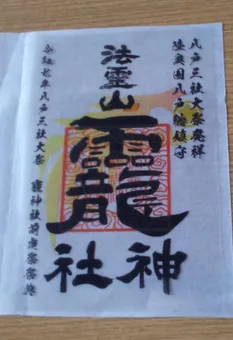 八戸三社大祭発祥
陸奥国八戸総鎮守
法霊山
龗
神社
令和七年八戸三社大祭
龗神社前夜祭祭典